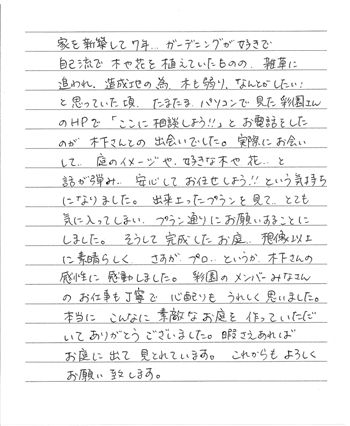 家を新築して7年… ガーデニングが好きで
自己流で木や花を植えていたものの、雑草に
追われ、造成土地の為、木も弱り、なんとかしたい!
と思っていた頃、たまたま、パソコンで見た彩園さん
のHPで「ここに相談しよう!!」とお電話をした
のが木下さんとの出会いでした。実際にお会い
して、庭のイメージや、好きな木や花…と
話が弾み、安心してお任せしよう!!という気持ち
になりました。出来上ったプランを見て、とても
気に入ってしまい、プラン通りにお願いすることに
しました。そうして完成したお庭、想像以上
に素晴らしく、さすがプロ…というか、木下さんの
感性に感動しました。彩園のメンバーみなさん
のお仕事も丁寧で心配りもうれしく思いました。
本当に、こんなに素敵なお庭を作っていただ
いてありがとうございました。暇さえあれば
お庭に出て見とれています。これからもよろしく
お願い致します。